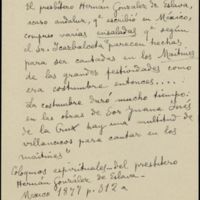 El presbítero Hernán González de Eslava,
acaso andaluz, q͡ escribió en México,
compuso varias ensaladas q͡ según
el Sr. Icazbalceta "parecen hechas
para ser cantadas en los Maitines
de las grandes festividades como
era costumbre entonces....."
La costumbre duró mucho tiempo:
en las obras de Sor Juana Inés
de la Cruz hay una multitud de
villancicos para cantar en los
maitines.
Coloquios espirituales—del presbítero
Hernán González de Eslava—
México 1877 p. 212 a